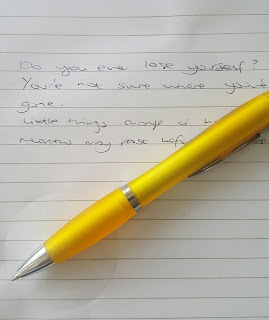 Do you ever lose yourself?
You're not sure where you've
gone.
Little things change a
Months may past bef